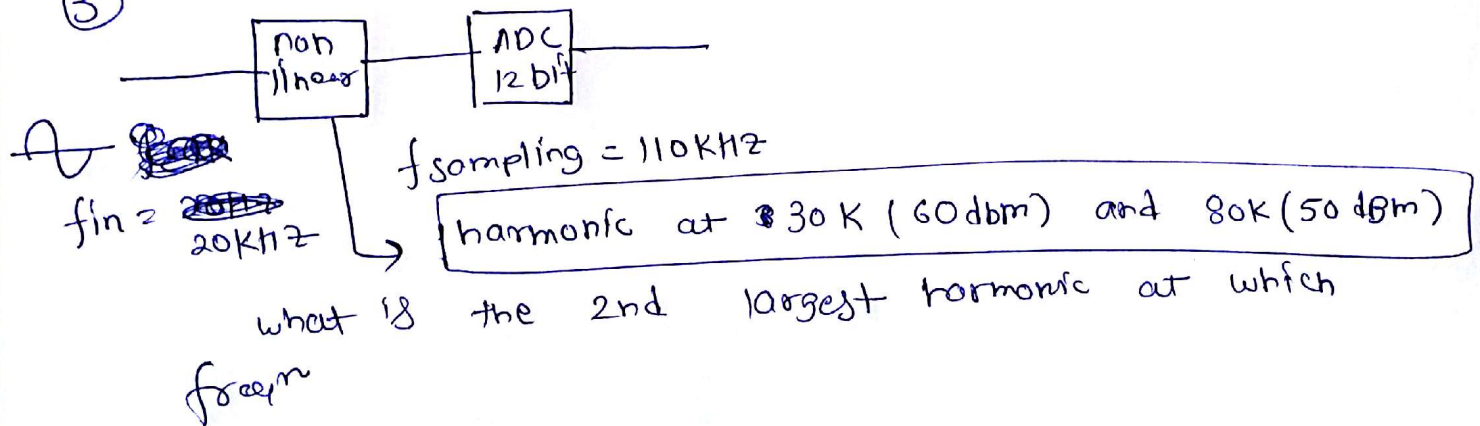 3
non
linear
ADC
12 bit
fsampling = 110KHZ
fin = 20KHZ
harmonic at 30K (60dbm) and 80K (50 dBm)
what is the 2nd largest harmonic at which
freqn